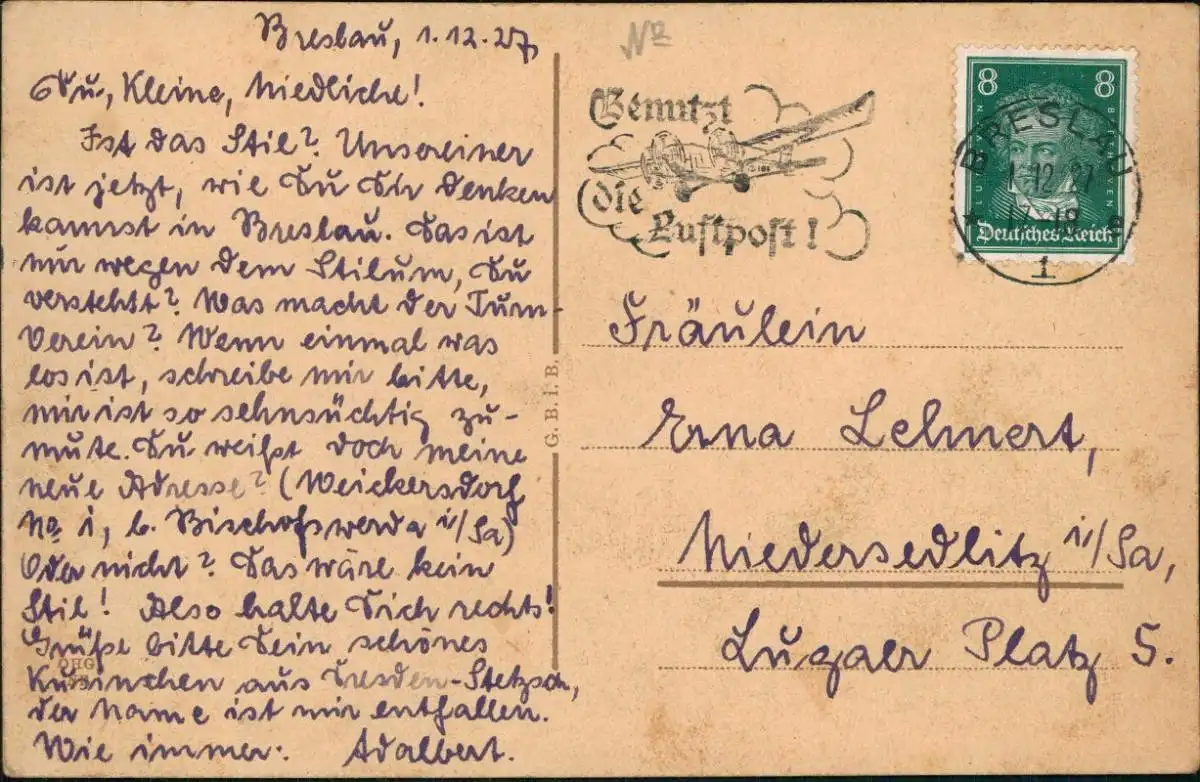 Breslau, 1.12.27,
Du, Kleine, Niedliche!
Ist das Stil? Unsereiner
ist jetzt, wie Du Dir denken
kannst in Breslau. Das ist
nur wegen dem Stilum, Du
verstehst? Was macht der Turn-
Verein? Wenn einmal was
los ist, schreibe mir bitte,
mir ist so sehnsüchtig zu-
mute. Du weißt doch meine
neue Adresse? (Weickersdorf
No 1, b. Bischofswerda i/Sa)
Oder nicht? Das wäre kein
Stil! Also halte Dich rechts!
Grüße bitte Dein schönes
Kusinchen aus Dresden-Stetzsch,
der Name ist mir entfallen.
Wie immer: Adalbert.
OHG
G. B. I. B.
No
Benutzt
die
Luftpost!
8 8
Deutsches Reich
BRESLAU
1.12.27
17-18
1
Fräulein
Erna Lehnert,
Niedersedlitz i/Sa,
Lugaer Platz 5.